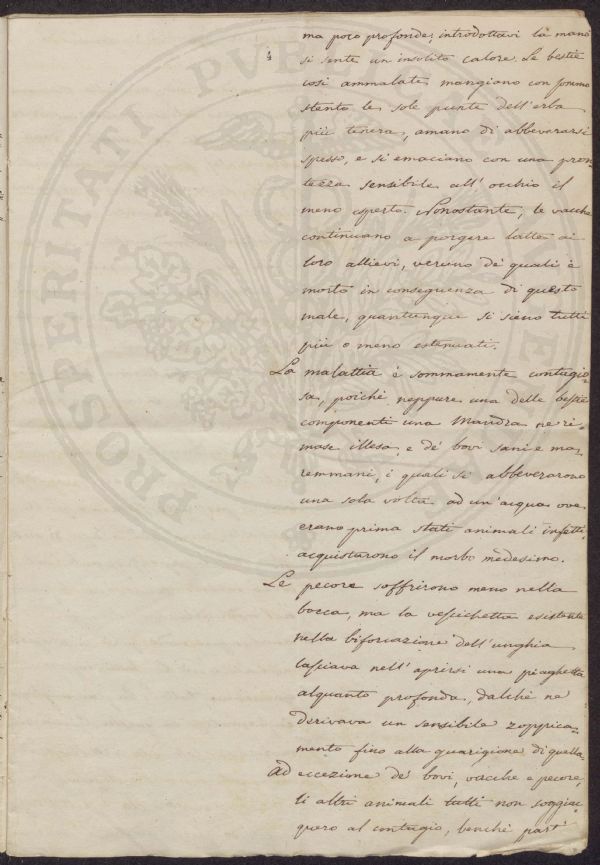 ma poco profonde; introdottavi la mano
si sente un insolito calore. Le bestie
così ammalate mangiano con sommo
stento le sole punte dell'erba
più tenera, amano di abbeverarsi
spesso, e si emaciano con una pron=
tezza sensibile all'occhio il
meno esperto. Nonostante, le vacche
continuano a porgere latte ai
loro allievi, veruno de' quali è
morto in conseguenza di questo
male, quantunque si sieno tutti
più o meno estenuati.
La malattia è sommamente contagio=
sa, poichè neppure una delle bestie
componenti una Mandra ne ri=
mase illesa, e de' bovi sani e ma=
remmani, i quali si abbeverarono
una sola volta ad un'acqua ove
erano prima stati animali infetti,
acquistarono il morbo medesimo.
Le pecore soffrirono meno nella
bocca, ma la vescichetta esistente
nella biforcazione dell'unghia
lasciava nell'aprirsi una piaghetta
alquanto profonda, dalchè ne
derivava un sensibile zoppica=
mento fino alla guarigione di quella.
Ad eccezione de' bovi, vacche e pecore,
li altri animali tutti non soggiac=
quero al contagio, benchè part'
PROSPERITATI PVB